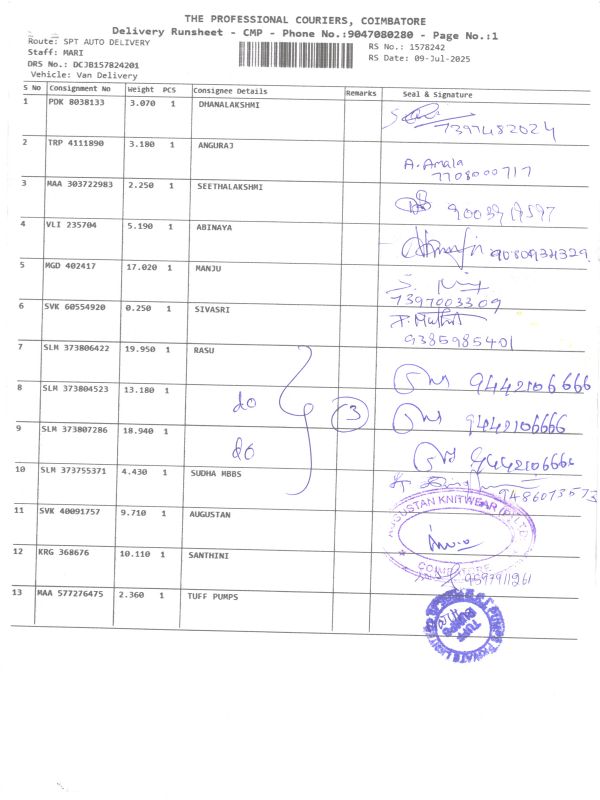 THE PROFESSIONAL COURIERS, COIMBATORE
Delivery Runsheet - CMP - Phone No.:9047080280 - Page No.:1
Route: SPT AUTO DELIVERY
Staff: MARI
DRS No.: DCJB157824201
Vehicle: Van Delivery
RS No.: 1578242
RS Date: 09-Jul-2025
S No Consignment No Weight PCS Consignee Details Remarks Seal & Signature
1 PDK 8038133 3.070 1 DHANALAKSHMI
7397482024
2 TRP 4111890 3.180 1 ANGURAJ
A. Amala
7708000717
3 MAA 303722983 2.250 1 SEETHALAKSHMI
4 VLI 235704 5.190 1 ABINAYA
9080934329
5 MGD 402417 17.020 1 MANJU
7397003309
6 SVK 60554920 0.250 1 SIVASRI
9385985401
7 SLM 373806422 19.950 1 RASU
9442106666
8 SLM 373804523 13.180 1 do 3
9442106666
9 SLM 373807286 18.940 1 do
9442106666
10 SLM 373755371 4.430 1 SUDHA MBBS
9486073573
11 SVK 40091757 9.710 1 AUGUSTAN
AUGUSTAN KNITWEAR (P) LTD
COIMBATORE
12 KRG 368676 10.110 1 SANTHINI
9597911261
13 MAA 577276475 2.360 1 TUFF PUMPS
TUFF PUMPS